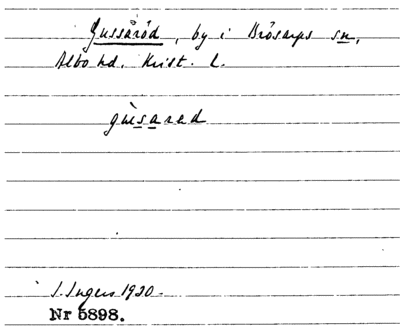 Gussaröd, by i Brösarps sn,
Albo hd. Krist. L.
gùsared
I. Ingers 1920.
Nr 5898.